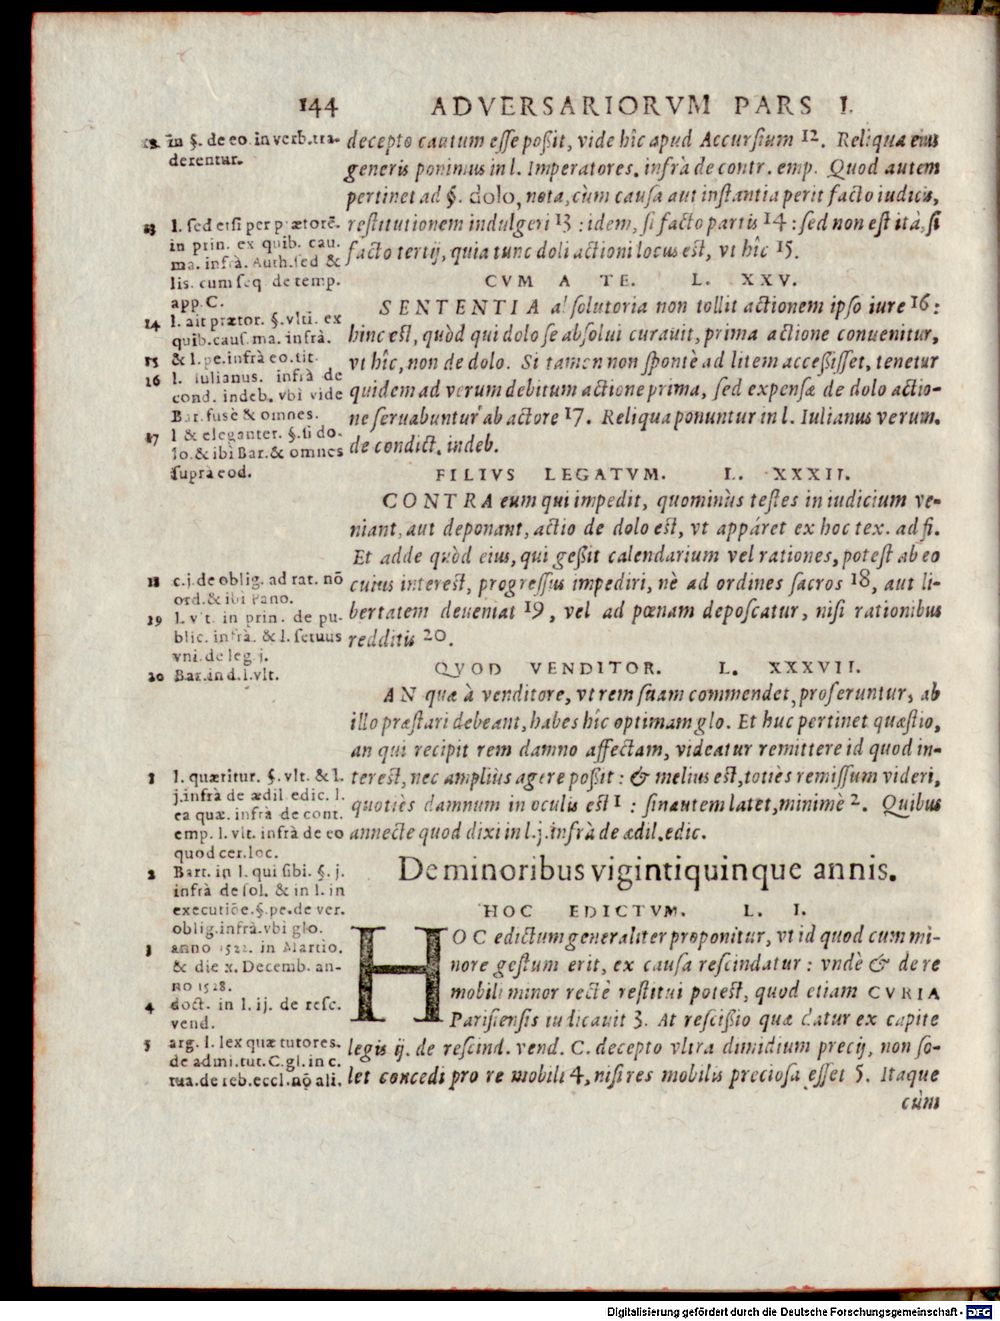 144 ADVERSARIORVM PARS I.
decepto cautum eſſe poßit, vide hîc apud Accurſium 12. Reliqua eius
generis ponimus in l. Imperatores. infrà de contr. emp. Quod autem
pertinet ad §. dolo, nota, cùm cauſa aut inſtantia perit facto iudicis,
reſtitutionem indulgeri 13 : idem, ſi facto partis 14 : ſed non eſt ità, ſi
facto tertij, quia tunc doli actioni locus eſt, vt hîc 15.
CVM A TE. L. XXV.
SENTENTIA abſolutoria non tollit actionem ipſo iure 16 :
hinc eſt, quòd qui dolo ſe abſolui curauit, prima actione conuenitur,
vt hîc, non de dolo. Si tamen non ſpontè ad litem acceßiſſet, tenetur
quidem ad verum debitum actione prima, ſed expenſæ de dolo actio-
ne ſeruabuntur ab actore 17. Reliqua ponuntur in l. Iulianus verum.
de condict. indeb.
FILIVS LEGATVM. L. XXXII.
CONTRA eum qui impedit, quominùs teſtes in iudicium ve-
niant, aut deponant, actio de dolo eſt, vt appáret ex hoc tex. ad fi.
Et adde quòd eius, qui geßit calendarium vel rationes, poteſt ab eo
cuius intereſt, progreſſus impediri, nè ad ordines ſacros 18, aut li-
bertatem deueniat 19, vel ad pœnam depoſcatur, niſi rationibus
redditis 20.
QVOD VENDITOR. L. XXXVII.
AN quæ à venditore, vt rem ſuam commendet, proferuntur, ab
illo præſtari debeant, habes hîc optimam glo. Et huc pertinet quæſtio,
an qui recipit rem damno affectam, videatur remittere id quod in-
tereſt, nec ampliùs agere poßit : & melius eſt, totiès remiſſum videri,
quotiès damnum in oculis eſt 1 : ſin autem latet, minimè 2. Quibus
annecte quod dixi in l. j. infrà de ædil. edic.
De minoribus vigintiquinque annis.
HOC EDICTVM. L. I.
HOC edictum generaliter proponitur, vt id quod cum mi-
nore geſtum erit, ex cauſa reſcindatur : vndè & de re
mobili minor rectè reſtitui poteſt, quod etiam CVRIA
Pariſienſis iudicauit 3. At reſcißio quæ datur ex capite
legis ij. de reſcind. vend. C. decepto vltra dimidium precij, non ſo-
let concedi pro re mobili 4, niſi res mobilis precioſa eſſet 5. Itaque
cùm
12 in §. de eo. in verb. tra-
derentur.
13 l. ſed etſi per prætorē.
in prin. ex quib. cau.
ma. infrà. Auth. ſed &
lis. cum ſeq. de temp.
app. C.
14 l. ait prætor. §. vlti. ex
quib. cauſ. ma. infrà.
15 & l. pe. infrà eo. tit.
16 l. Iulianus. infrà de
cond. indeb. vbi vide
Bar. fusè & omnes.
17 l & eleganter. §. ſi do-
lo. & ibi Bar. & omnes
ſuprà eod.
18 c. j. de oblig. ad rat. nō
ord. & ibi Pano.
19 l. vlt. in prin. de pu-
blic. infrà. & l. ſeruus
vni. de leg. j.
20 Bar. in d. l. vlt.
1 l. quæritur. §. vlt. & l.
j. infrà de ædil edic. l.
ea quæ. infrà de cont.
emp. l. vlt. infrà de eo
quod cer. loc.
2 Bart. in l. qui ſibi. §. j.
infrà de ſol. & in l. in
executiōe. §. pe. de ver.
oblig. infrà. vbi glo.
3 anno 1522. in Martio.
& die x. Decemb. an-
no 1528.
4 doct. in l. ij. de reſc.
vend.
5 arg. l. lex quæ tutores.
de admi. tut. C. gl. in c.
tua. de reb. eccl. nō ali.
Digitalisierung gefördert durch die Deutsche Forschungsgemeinschaft - DFG